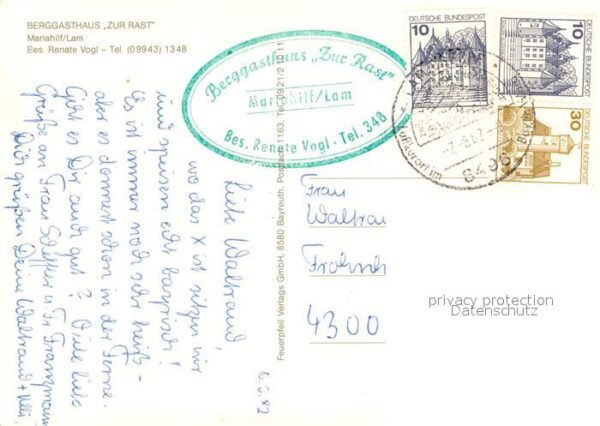 BERGGASTHAUS „ZUR RAST"
Mariahilf/Lam
Bes. Renate Vogl - Tel. (0 99 43) 1 3 48
Berggasthaus „Zur Rast"
Mariahilf/Lam
Bes. Renate Vogl · Tel. 348
10
DEUTSCHE BUNDESPOST
10
DEUTSCHE BUNDESPOST
30
DEUTSCHE BUNDESPOST
8496
6.6.82
Liebe Waltraud,
wo das X ist sitzen wir
und speisen echt bayrisch!
Es ist immer noch sehr heiß -
aber es donnert schon in der Ferne.
Geht es Dir auch gut? Viele liebe
Grüße an Frau
Dich grüßen Deine Waltraud + Willi.
Feuerpfeil Verlags GmbH, 8580 Bayreuth,
Frau
Waltrau
4300
privacy protection
Datenschutz